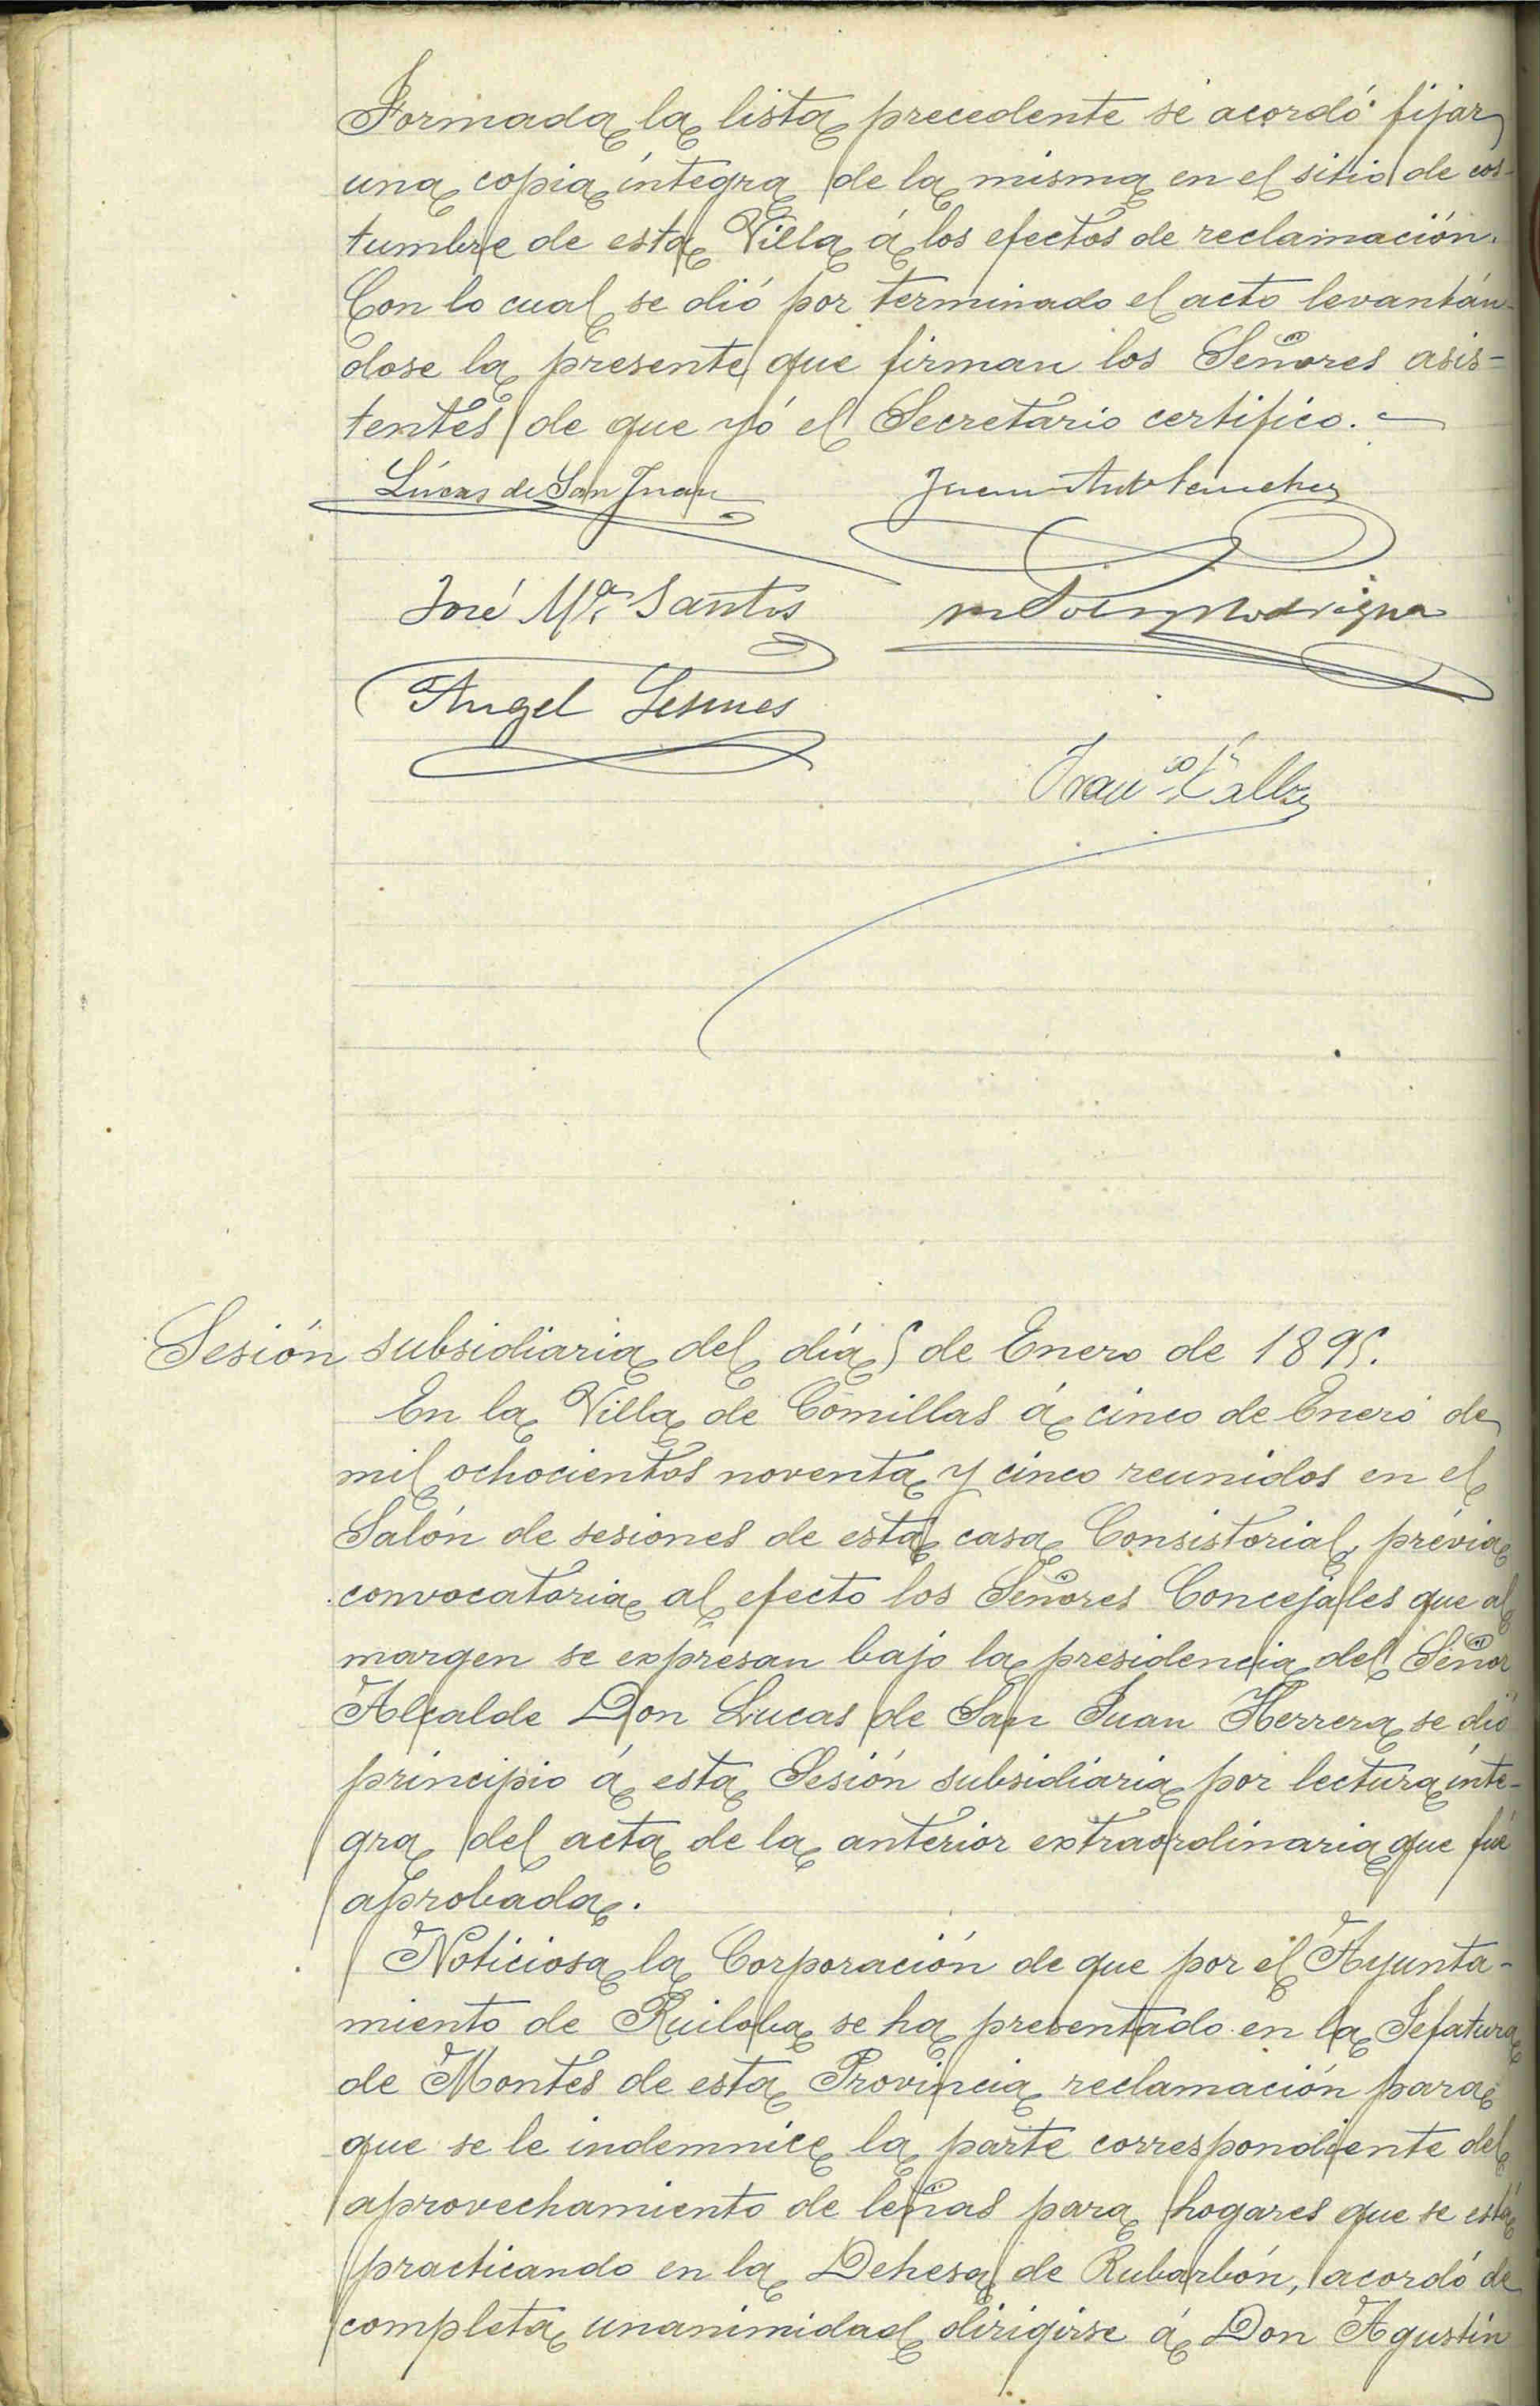 Formada la lista precedente se acordó fijar
una copia íntegra de la misma en el sitio de cos-
tumbre de esta Villa á los efectos de reclamación.
Con lo cual se dió por terminado el acto levantán-
dose la presente que firman los Señores asis-
tentes de que yó el Secretario certifico.
Lúcas de San Juan
Juan Ant Sanchez
José Mª Santos
Rodrigue
Angel Lesmes
Fran.co
Sesión subsidiaria del día 5 de Enero de 1895.
En la Villa de Comillas á cinco de Enero de
mil ochocientos noventa y cinco reunidos en el
Salón de sesiones de esta casa Consistorial, prévia
convocatoria al efecto los Señores Concejales que al
margen se expresan bajo la presidencia del Señor
Alcalde Don Lucas de San Juan Herrera se dió
principio á esta Sesión subsidiaria por lectura ínte-
gra del acta de la anterior extraordinaria que fué
aprobada.
Noticiosa la Corporación de que por el Ayunta-
miento de Ruiloba se ha presentado en la Jefatura
de Montes de esta Provincia reclamación para
que se le indemnice la parte correspondiente del
aprovechamiento de leñas para hogares que se está
practicando en la Dehesa de Rubarbón, acordó de
completa unanimidad dirigirse á Don Agustín